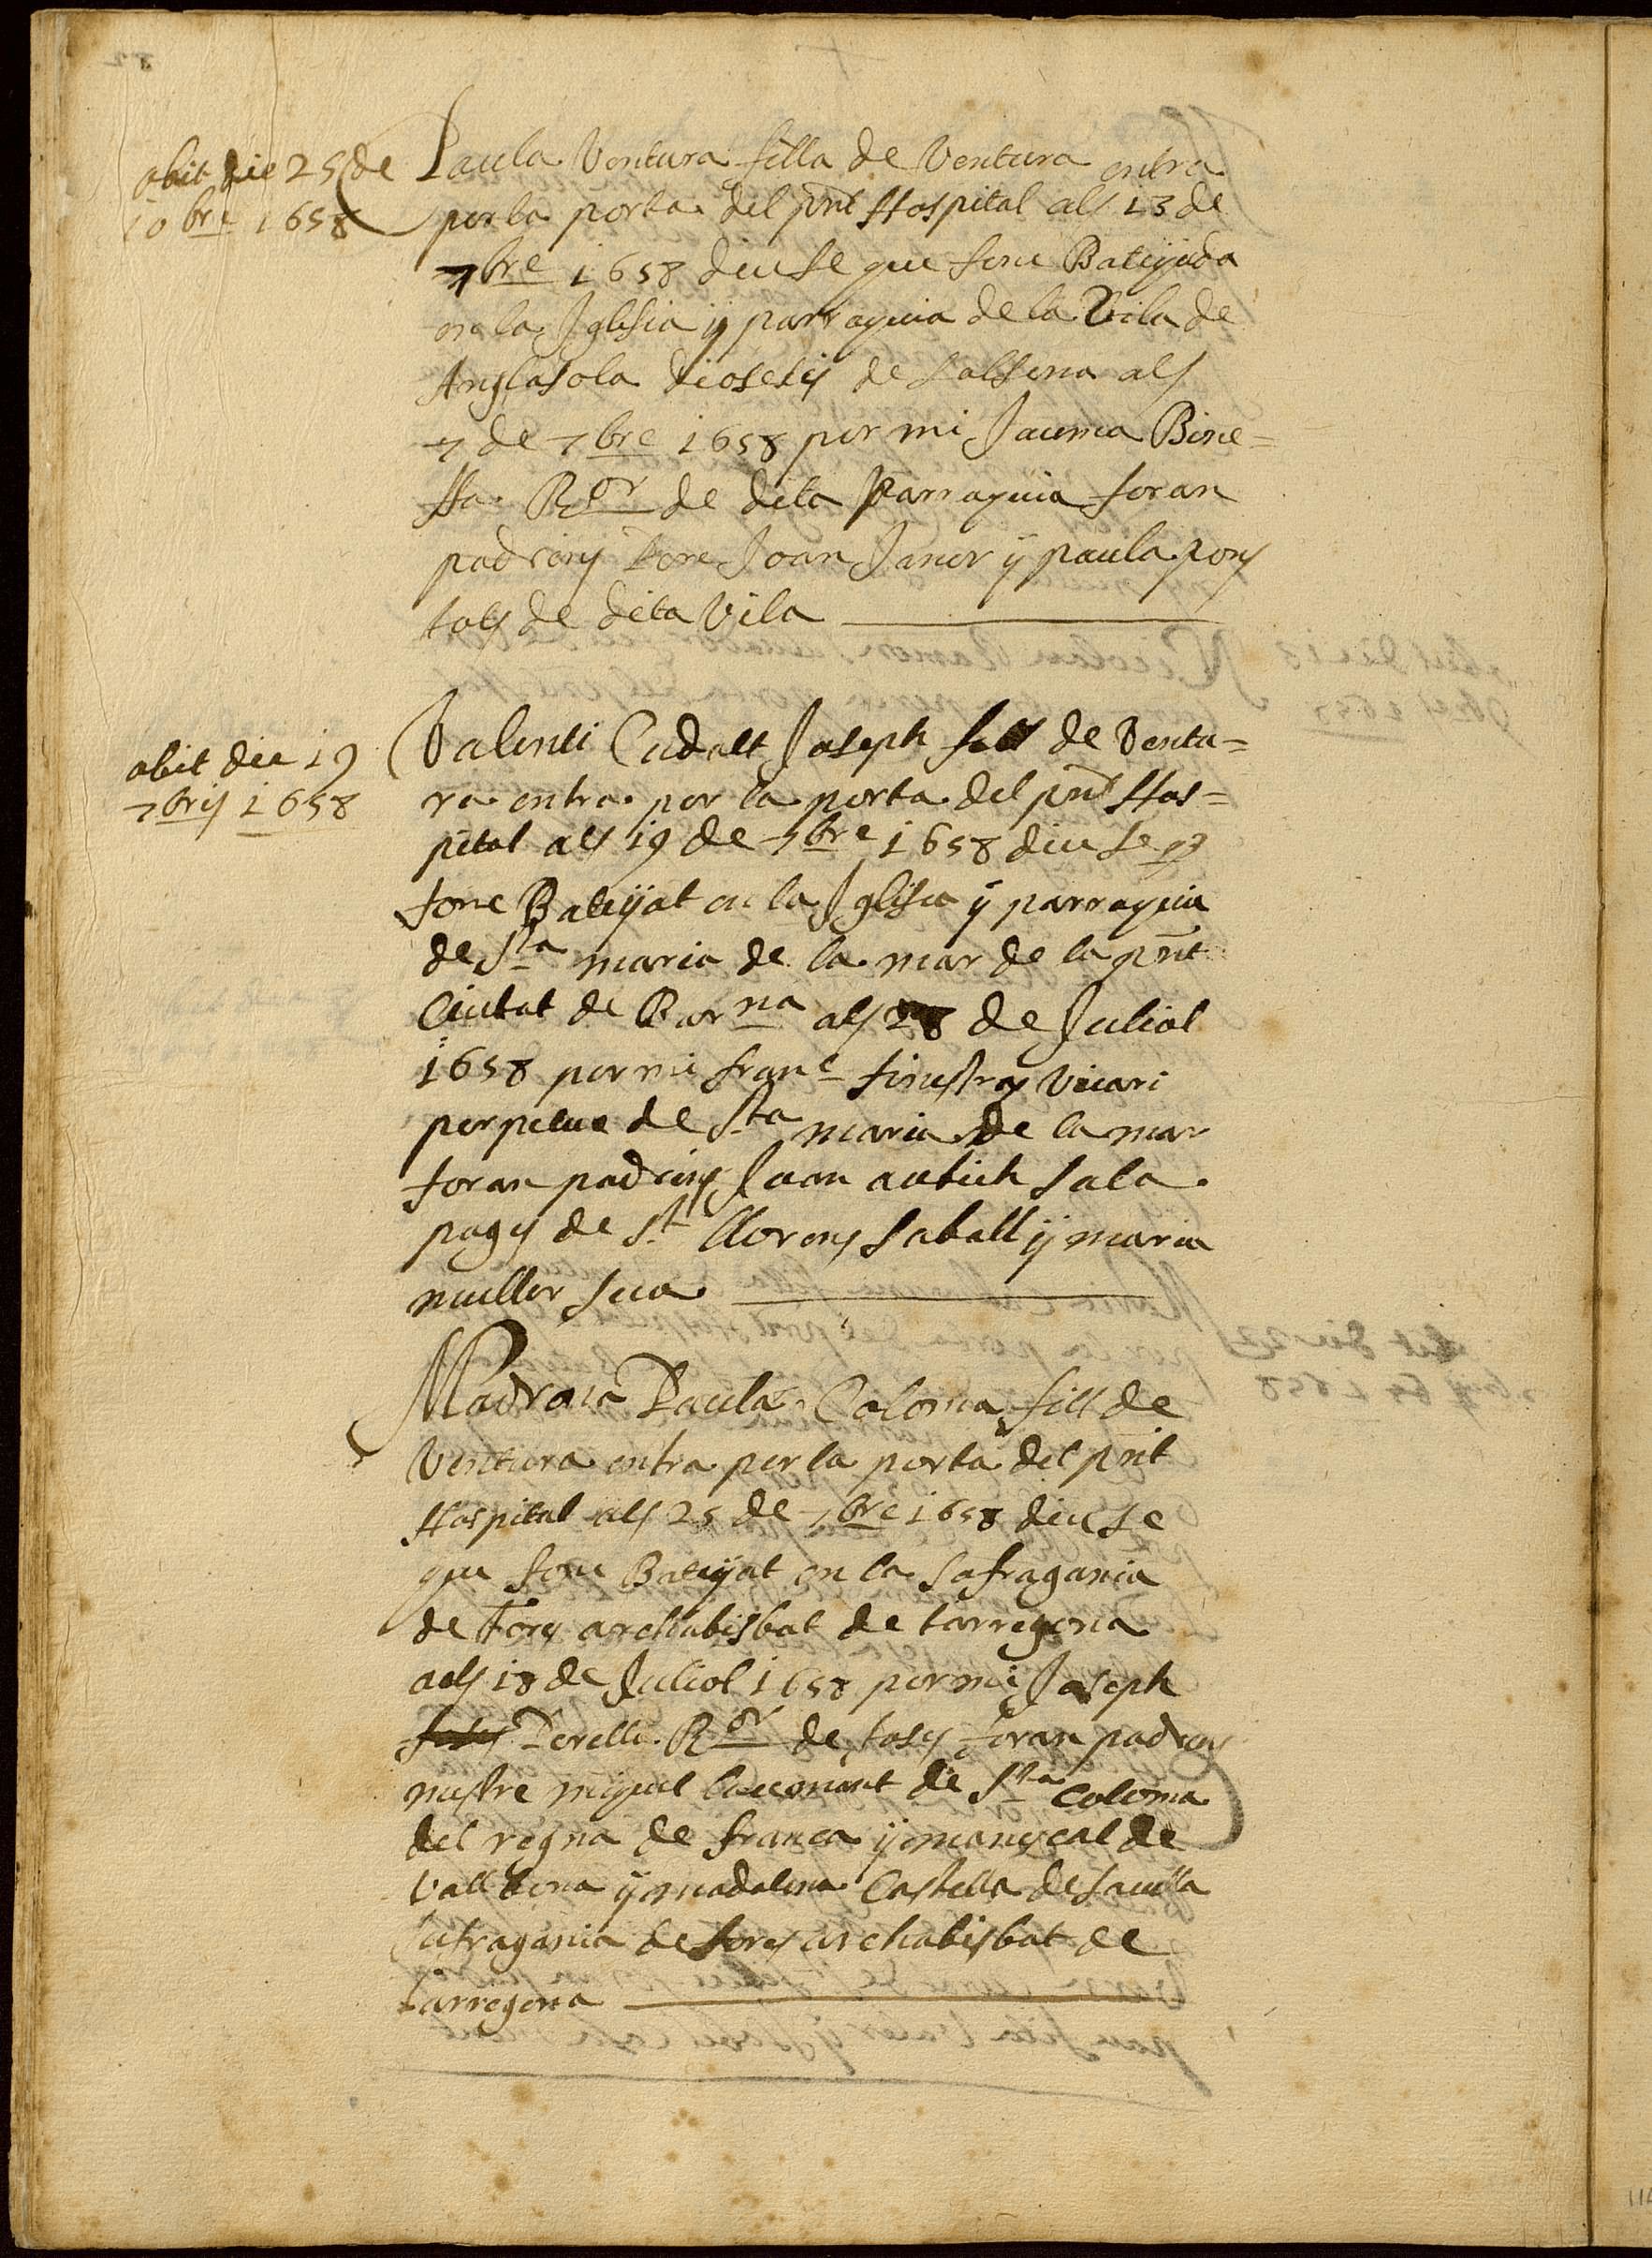 obit die 25 de
10 bre 1658
Paula Ventura filla de Ventura entra
per la porta del pnt Hospital als 13 de
7bre 1658 diu se que fonc Batejada
en la Iglesia ÿ parroquia de la Vila de
Anglasola diosesis de Solsona als
7 de 7bre 1658 per mi Jauma
Ror de dita Parroquia foran
padrins Pere Joan Janer ÿ paula pons
tots de dita Vila
obit die 19
7bris 1658
Valenti Cudalt Joseph fill de Ventu=
ra entra per la porta del pnt Hos=
pital als 19 de 7bre 1658 diu se q
fonc Batejat en la Iglesia ÿ parroquia
de Sta maria de la mar de la pnt
Ciutat de Barna als 28 de Juliol
1658 per mi franc finestres Vicari
perpetuo de Sta maria de la mar
foran padrins Juan antich sala
pages de St llorens saball ÿ maria
muller sua
Madrona Paula Coloma fill de
Ventura entra per la porta del pnt
Hospital als 25 de 7bre 1658 diu se
que fonc Batejat en la safragania
de Fores archabisbat de tarregona
als 18 de Juliol 1658 per mi Joseph
Perello Ror de foses foran padrins
mestre miquel de Sta Coloma
del regna de franca ÿ manescal de
Vallbona ÿ madalena Castella de saulla
sufragania de fores archabisbat de
tarregona